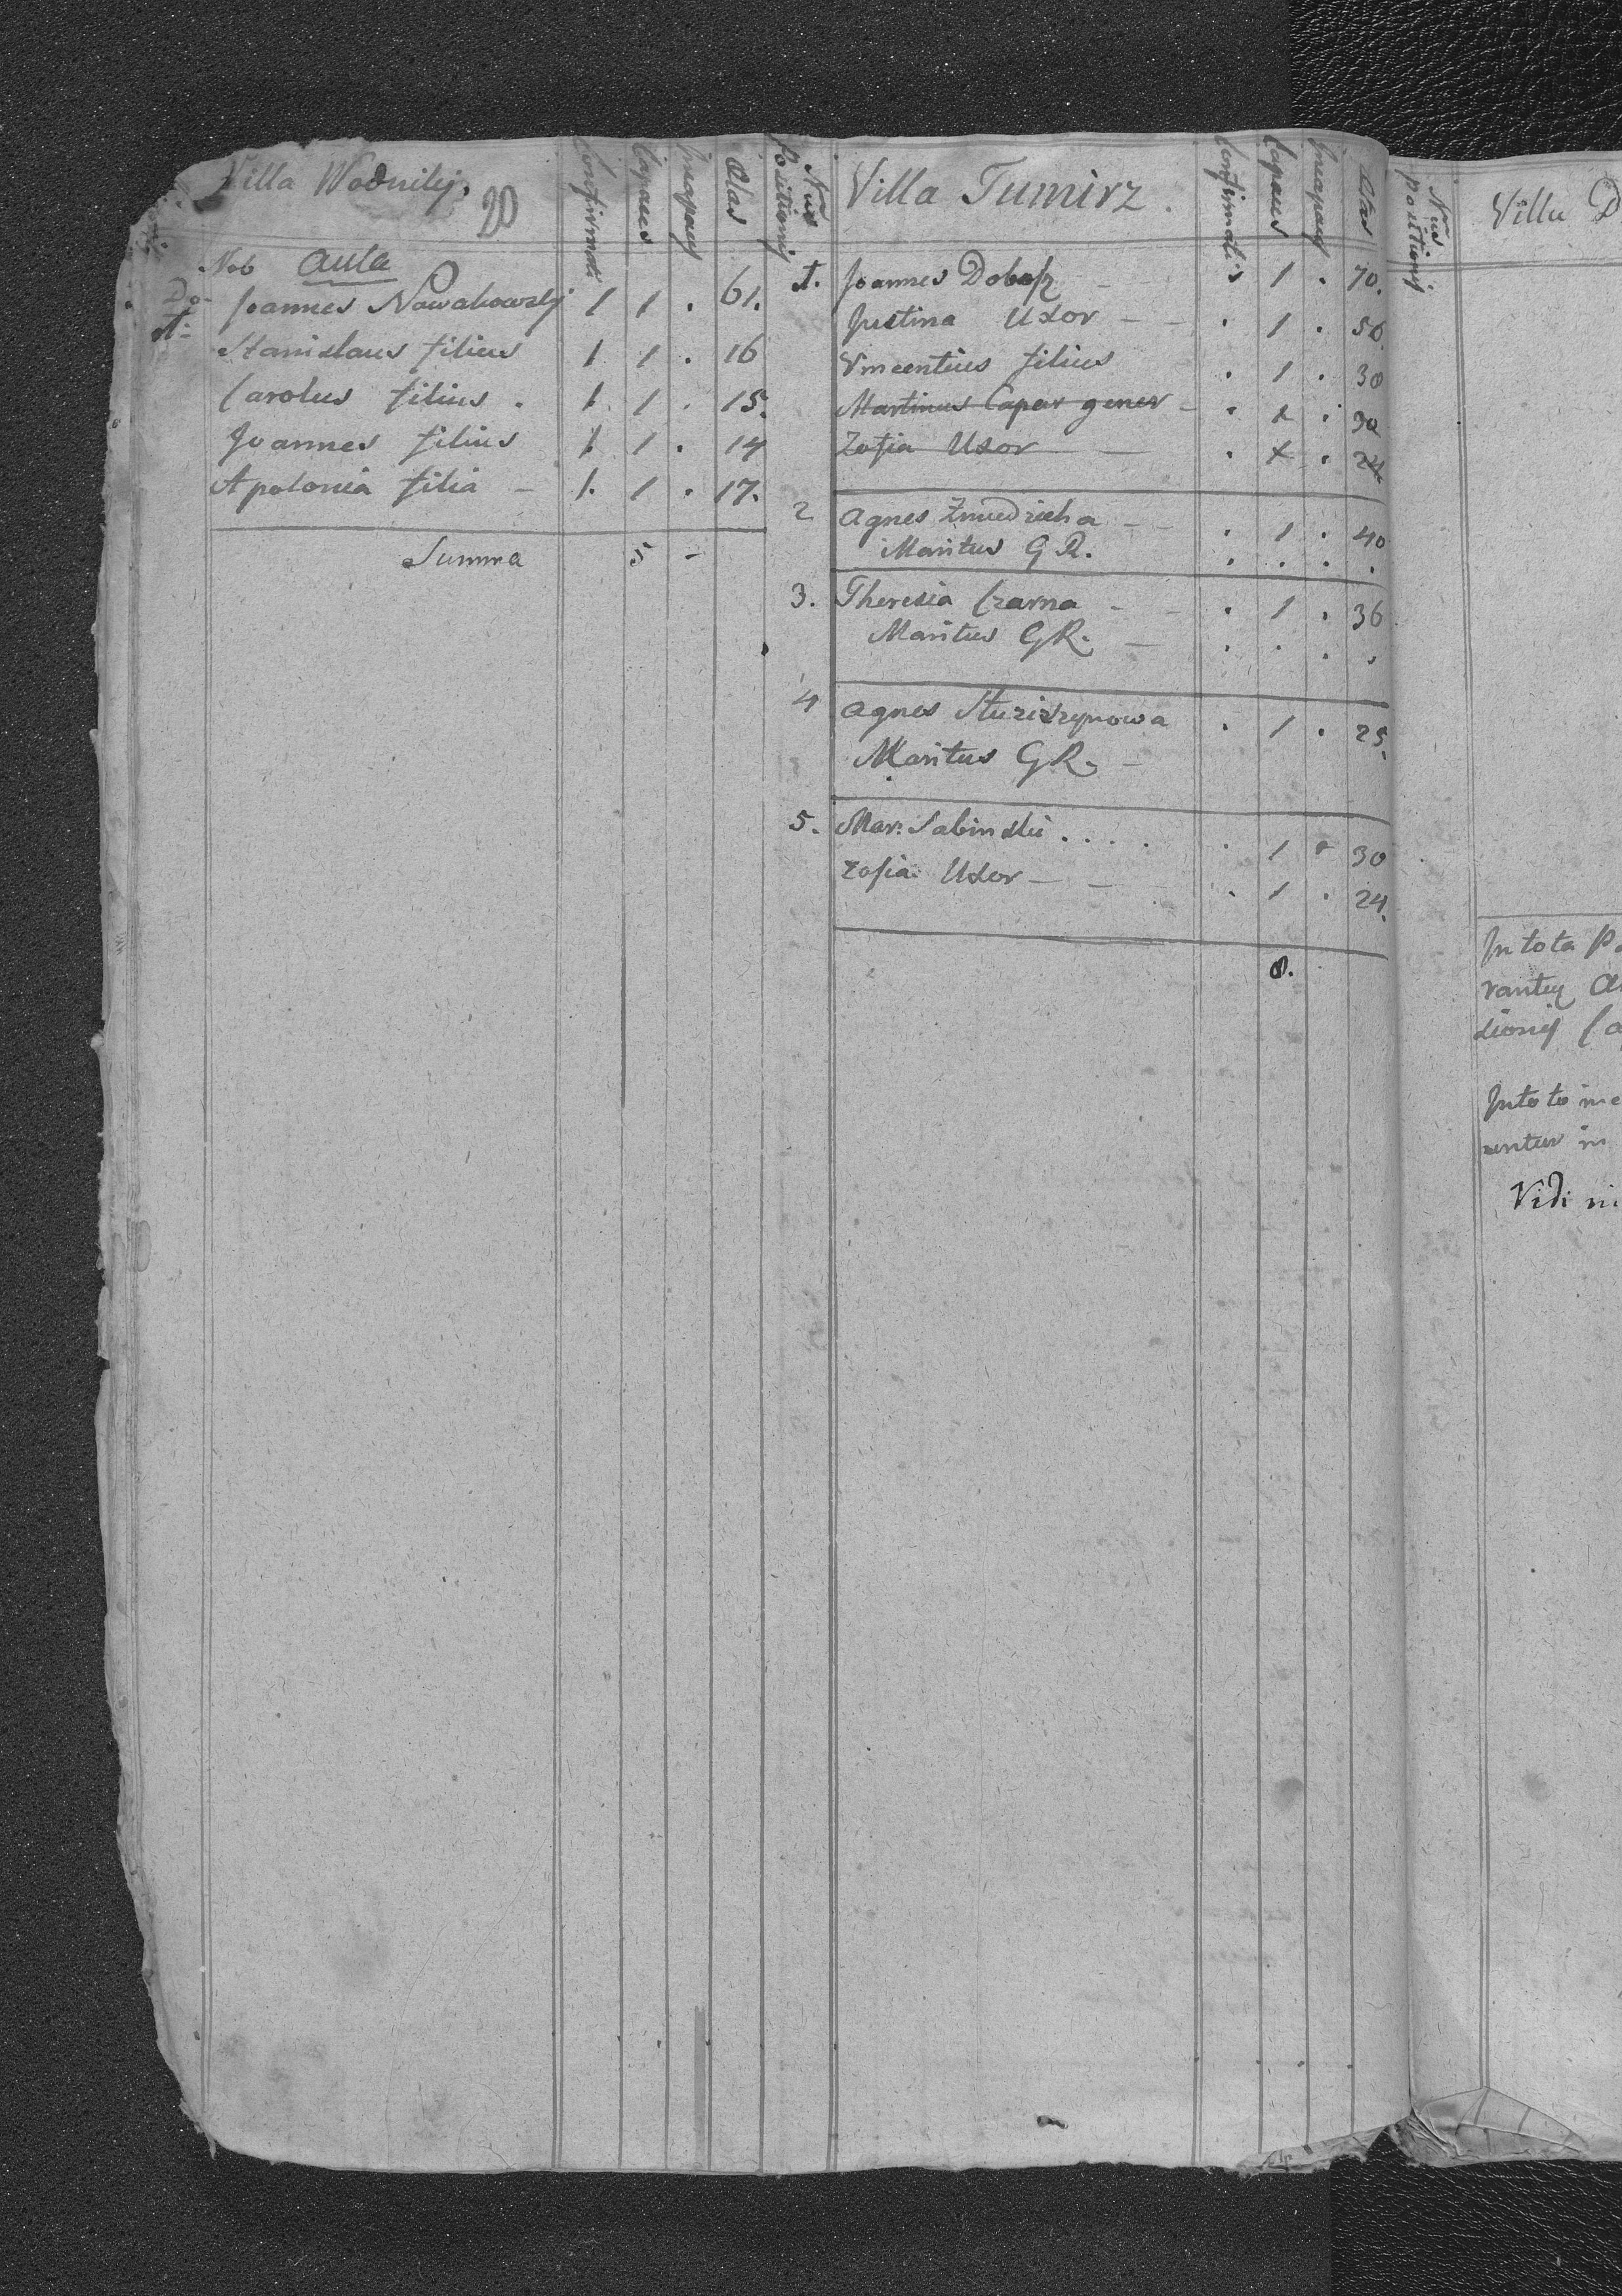 Villa Wodniky.
20
Confirmati
Capaces
Incapaces
Ætas
Nob Aula
Do
1. Joannes Nowakowsky 1 1 . 61.
Stanislaus filius 1 1 . 16
Carolus filius . 1. 1 . 15.
Joannes filius 1. 1 . 14
Apolonia filia - 1. 1 . 17.
Summa 5 -
Nrus
Positionis
Villa Tumirz.
Confirmatis
Capaces
Incapaces
Ætas
1. Joannes Dobosz - - 1 . 70.
Justina Uxor - - . 1 . 50.
Vincentius filius . 1 . 30
Martinus Capar gener - . 1 . 30
Zofia Uxor - . 1 . 24
2 Agnes Zmudzicha - - . 1 . 40
Maritus GR. . . . .
3. Theresia Czarna - - . 1 . 36
Maritus GR. - . . . .
4 Agnes Sturiszynowa . 1 . 25.
Maritus GR. -
5. Mar: Sabinski . . . . . 1 . 30
Zofia Uxor - - . 1 . 24.
8.
Nrus
Positionis
Villa D
In tota P
rantes
sionis Ca
In toto
untur in
Vidi